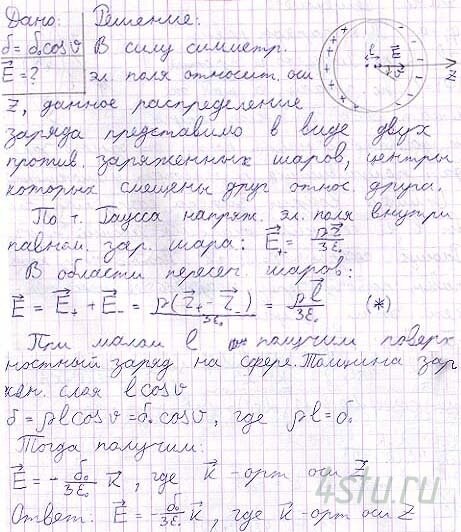 Дано: Решение:
σ = σ₀cosϑ В силу симметр.
E⃗ = ? эл. поля относит. оси
Z, данное распределение
заряда представимо в виде двух
против. заряженных шаров, центры
которых смещены друг относ. друга.
По т. Гаусса напряж. эл. поля внутри
равном. зар. шара: E⃗₊ = ρr⃗/3ε₀
В области пересеч. шаров:
E⃗ = E⃗₊ + E⃗₋ = ρ(r⃗₊ - r⃗₋)/3ε₀ = ρl⃗/3ε₀ (*)
При малом l получим поверх
ностный заряд на сфере. Толщина зар
жен. слоя lcosϑ
σ = ρlcosϑ = σ₀cosϑ, где ρl = σ₀
Тогда получим:
E⃗ = - σ₀/3ε₀ k⃗, где k⃗ - орт оси Z
Ответ: E⃗ = - σ₀/3ε₀ k⃗, где k⃗ - орт оси Z
l E⃗ ϑ Z
4stu.ru